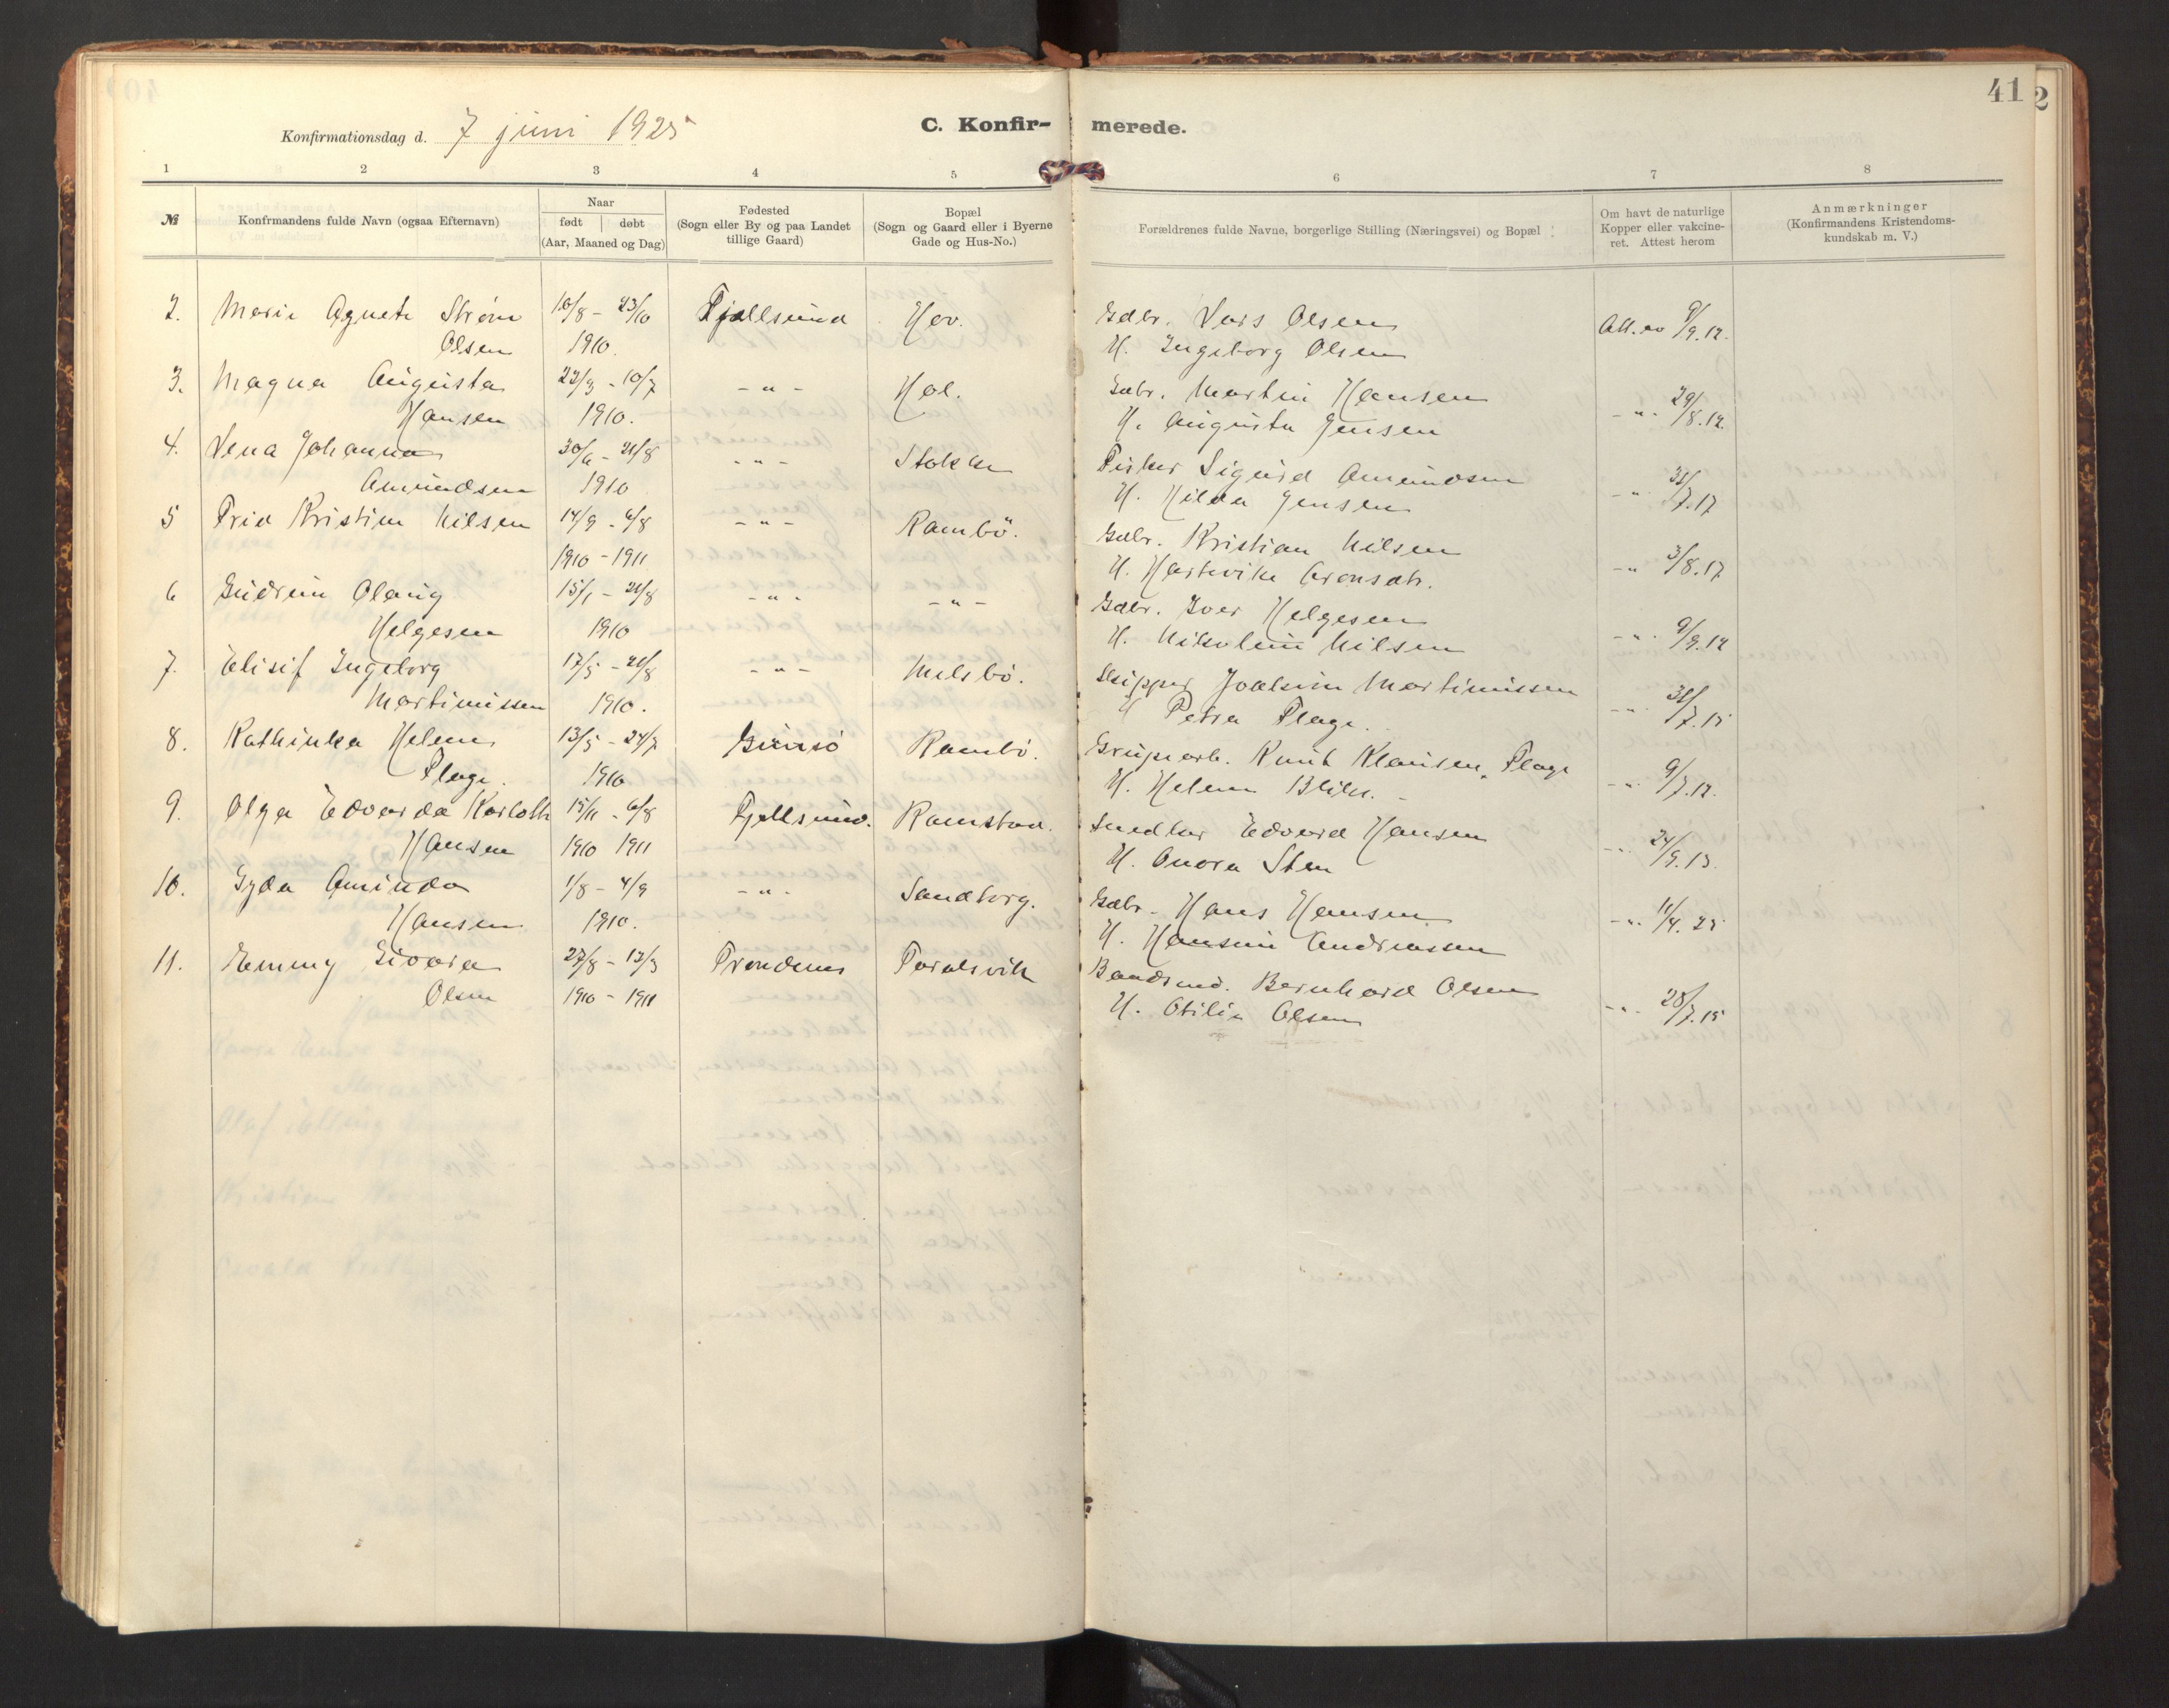 41
2
Konfirmationsdag d. 7 juni 1925
C. Konfir- merede.
1 2 3 4 5 6 7 8
№ Konfrmandens fulde Navn (ogsaa Efternavn)
Naar
født | døbt
(Aar, Maaned og Dag)
Fødested
(Sogn eller By og paa Landet
tillige Gaard)
Bopæl
(Sogn og Gaard eller i Byerne
Gade og Hus-No.)
Forældrenes fulde Navne, borgerlige Stilling (Næringsvei) og Bopæl
Om havt de naturlige
Kopper eller vakcine-
ret. Attest herom
Anmærkninger
(Konfirmandens Kristendoms-
kundskab m. V.)
2. Marie Agnete Strøm 10/8 - 23/10 Fjellsund Hov. Gdbr. Lars Olsen Att. av 9/9.12.
Olsen 1910. H. Ingeborg Olsen
3. Magna Augusta 22/3 - 10/7 - " - Hol. Gdbr. Martin Hansen - " - 29/8.12.
Hansen 1910. H. Augusta Jensen
4. Lena Johanna 30/6 - 21/8 - " - Stokke Fisker Sigurd Amundsen - " - 31/7.17
Amundsen 1910 H. Hilda Jensen
5 Frid Kristine Nilsen 14/9 - 6/8 - " - Rambö. Gdbr. Kristian Nilsen - " 3/8.17
1910 - 1911 H. Hartvike Aronsdtr.
6 Gudrun Olaug 15/1 - 21/8 - " - - " - Gdbr. Iver Helgesen - " - 9/9.12
Helgesen 1910 H. Nikoline Nilsen
7. Elisif Ingeborg 17/5 - 21/8 - " - Melsbö. Skipper Joakim Martinussen - " - 31/7.15
Martinussen 1910. H Petra Plage.
8. Kathinka Helene 13/5 - 24/7 Gimsö Rambö. Gruparb. Knut Klausen Plage - " - 9/7.12.
Plage. 1910 H. Helene Blikr. -
9. Olga Edvarda Karloth 15/11 - 6/8 Fjellsund. Ramstad. Snedker Edvard Hansen - " - 24/9.13.
Hansen 1910 1911 H. Anora Sten
10. Gyda Aminda 1/8 - 4/9 - " - Sandtorg. Gdbr. Hans Hansen - " - 11/4.25
Hansen 1910. H. Hansine Andreassen
11. Emmy Sivora 27/8 - 12/3 Trondenes Toralsvik Baadsmd. Bernhard Olsen - " - 28/7.15
Olsen 1910 - 1911 H. Otilie Olsen